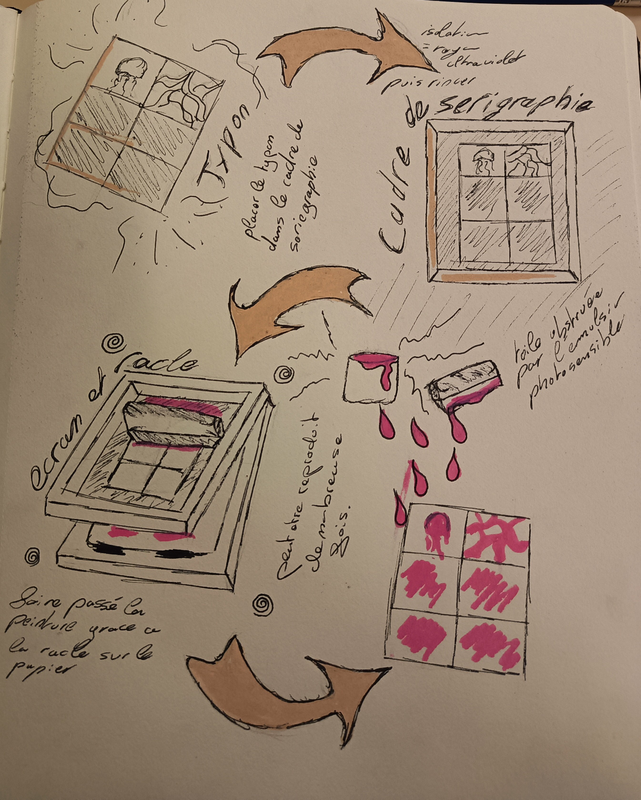 Typon
placer le typon
dans le cadre de
serigraphie
isolation
= rayon
ultraviolet
puis rincer
Cadre de serigraphie
toile obstruée
par l'emulsion
photosensible
ecran et racle
peut etre reproduit
de nombreuse
fois.
faire passé la
peinture grace a
la racle sur le
papier